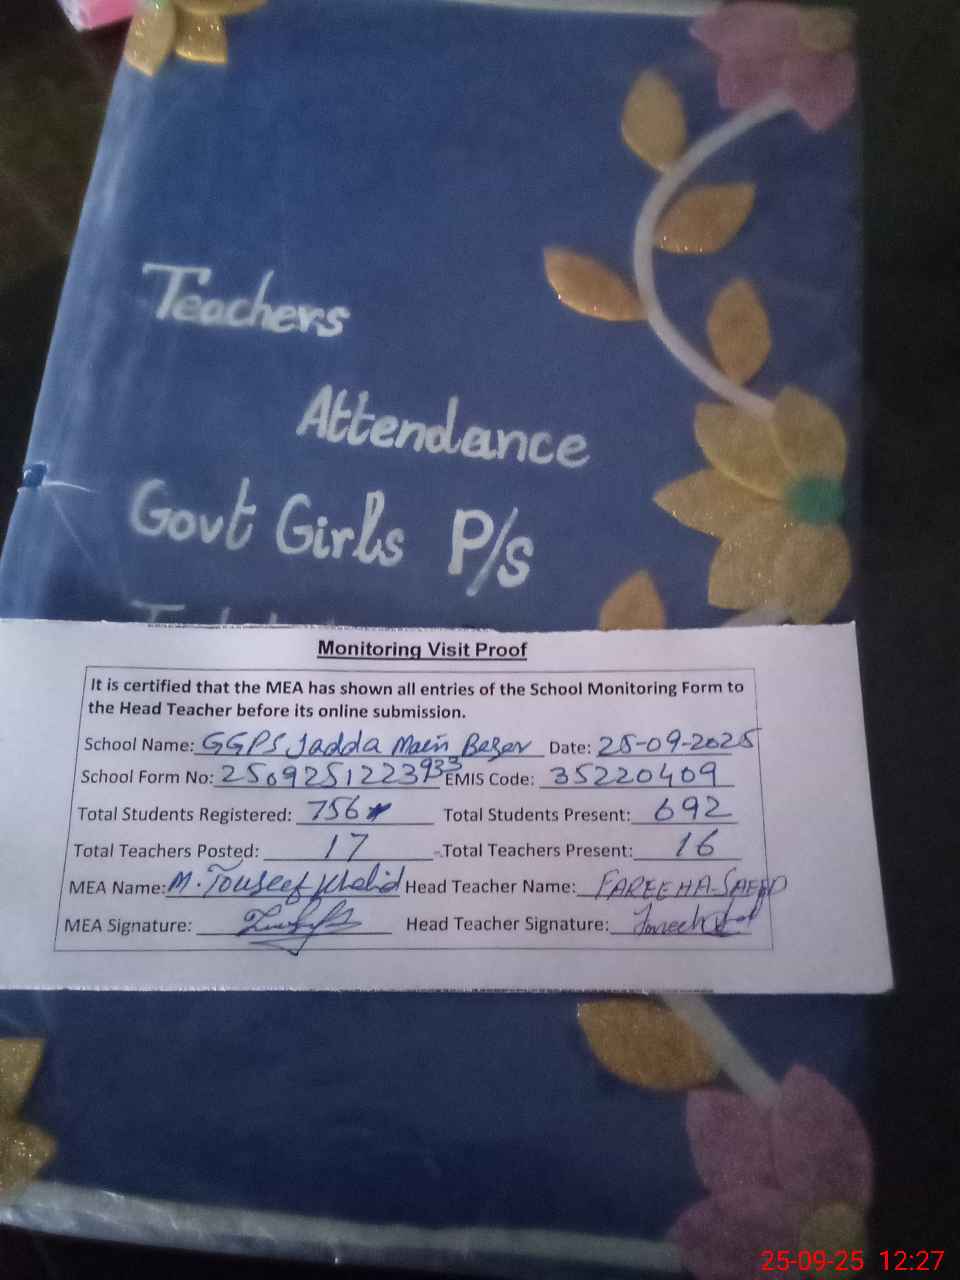 Teachers
Attendance
Govt Girls P/s
Monitoring Visit Proof
It is certified that the MEA has shown all entries of the School Monitoring Form to
the Head Teacher before its online submission.
School Name: GGPS Jadda Main Bazar Date: 25-09-2025
School Form No: 2509251223933 EMIS Code: 35220409
Total Students Registered: 756 Total Students Present: 692
Total Teachers Posted: 17 Total Teachers Present: 16
MEA Name: M. Touseef Khalid Head Teacher Name: FAREEHA SAEED
MEA Signature: Head Teacher Signature:
25-09-25 12:27